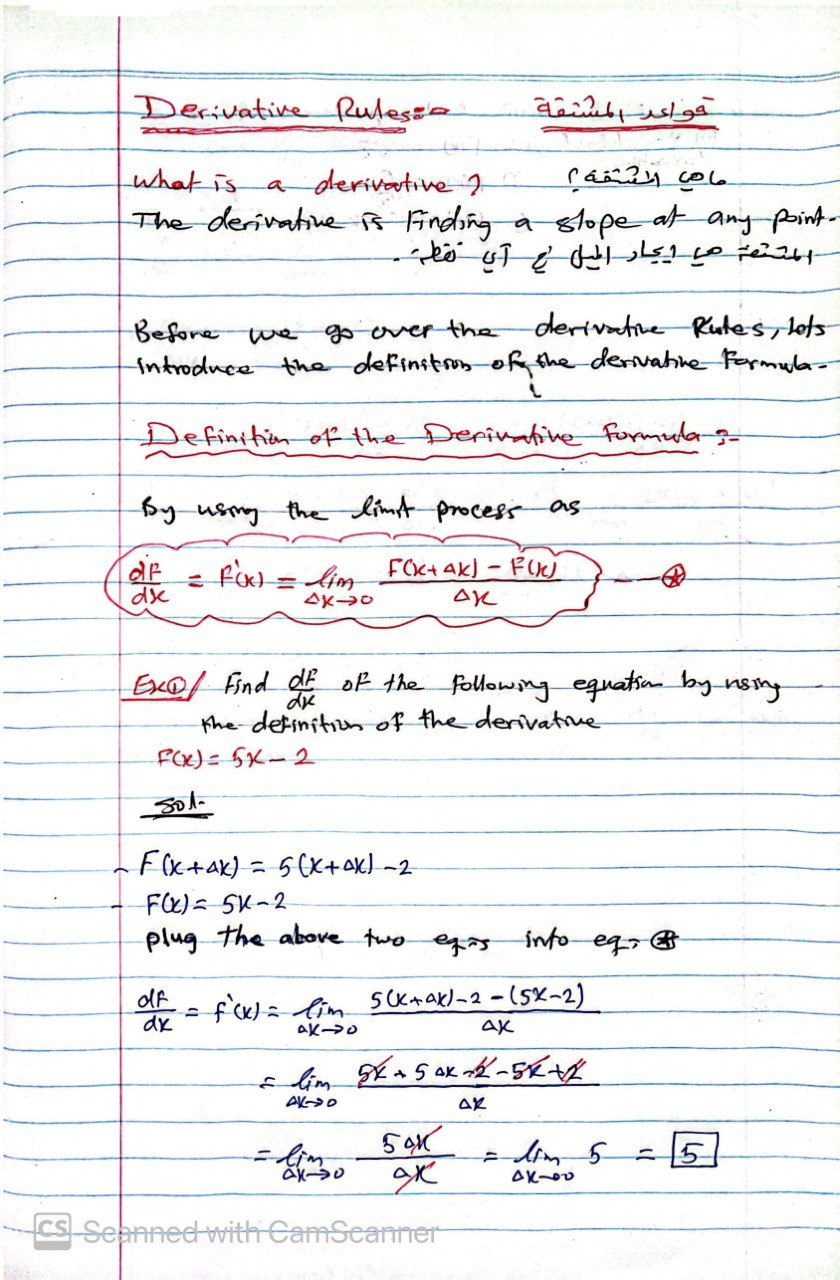 Derivative Rules:- قواعد المشتقة
What is a derivative? ما هي المشتقة؟
The derivative is Finding a slope at any point.
المشتقة هي ايجاد الميل في أي نقطة.
Before we go over the derivative Rules, lets
introduce the definition of the derivative Formula.
Definition of the Derivative Formula :-
By using the limit process as
dF/dx = F'(x) = lim Δx→0 (F(x+Δx) - F(x))/Δx --- ⊛
Ex①/ Find dF/dx of the following equation by using
the definition of the derivative
F(x) = 5x - 2
Sol.
- F(x+Δx) = 5(x+Δx) - 2
- F(x) = 5x - 2
plug the above two eq.s into eq. ⊛
dF/dx = f'(x) = lim Δx→0 (5(x+Δx)-2-(5x-2))/Δx
= lim Δx→0 (5x + 5Δx - 2 - 5x + 2)/Δx
= lim Δx→0 5Δx/Δx = lim Δx→0 5 = 5
CS Scanned with CamScanner